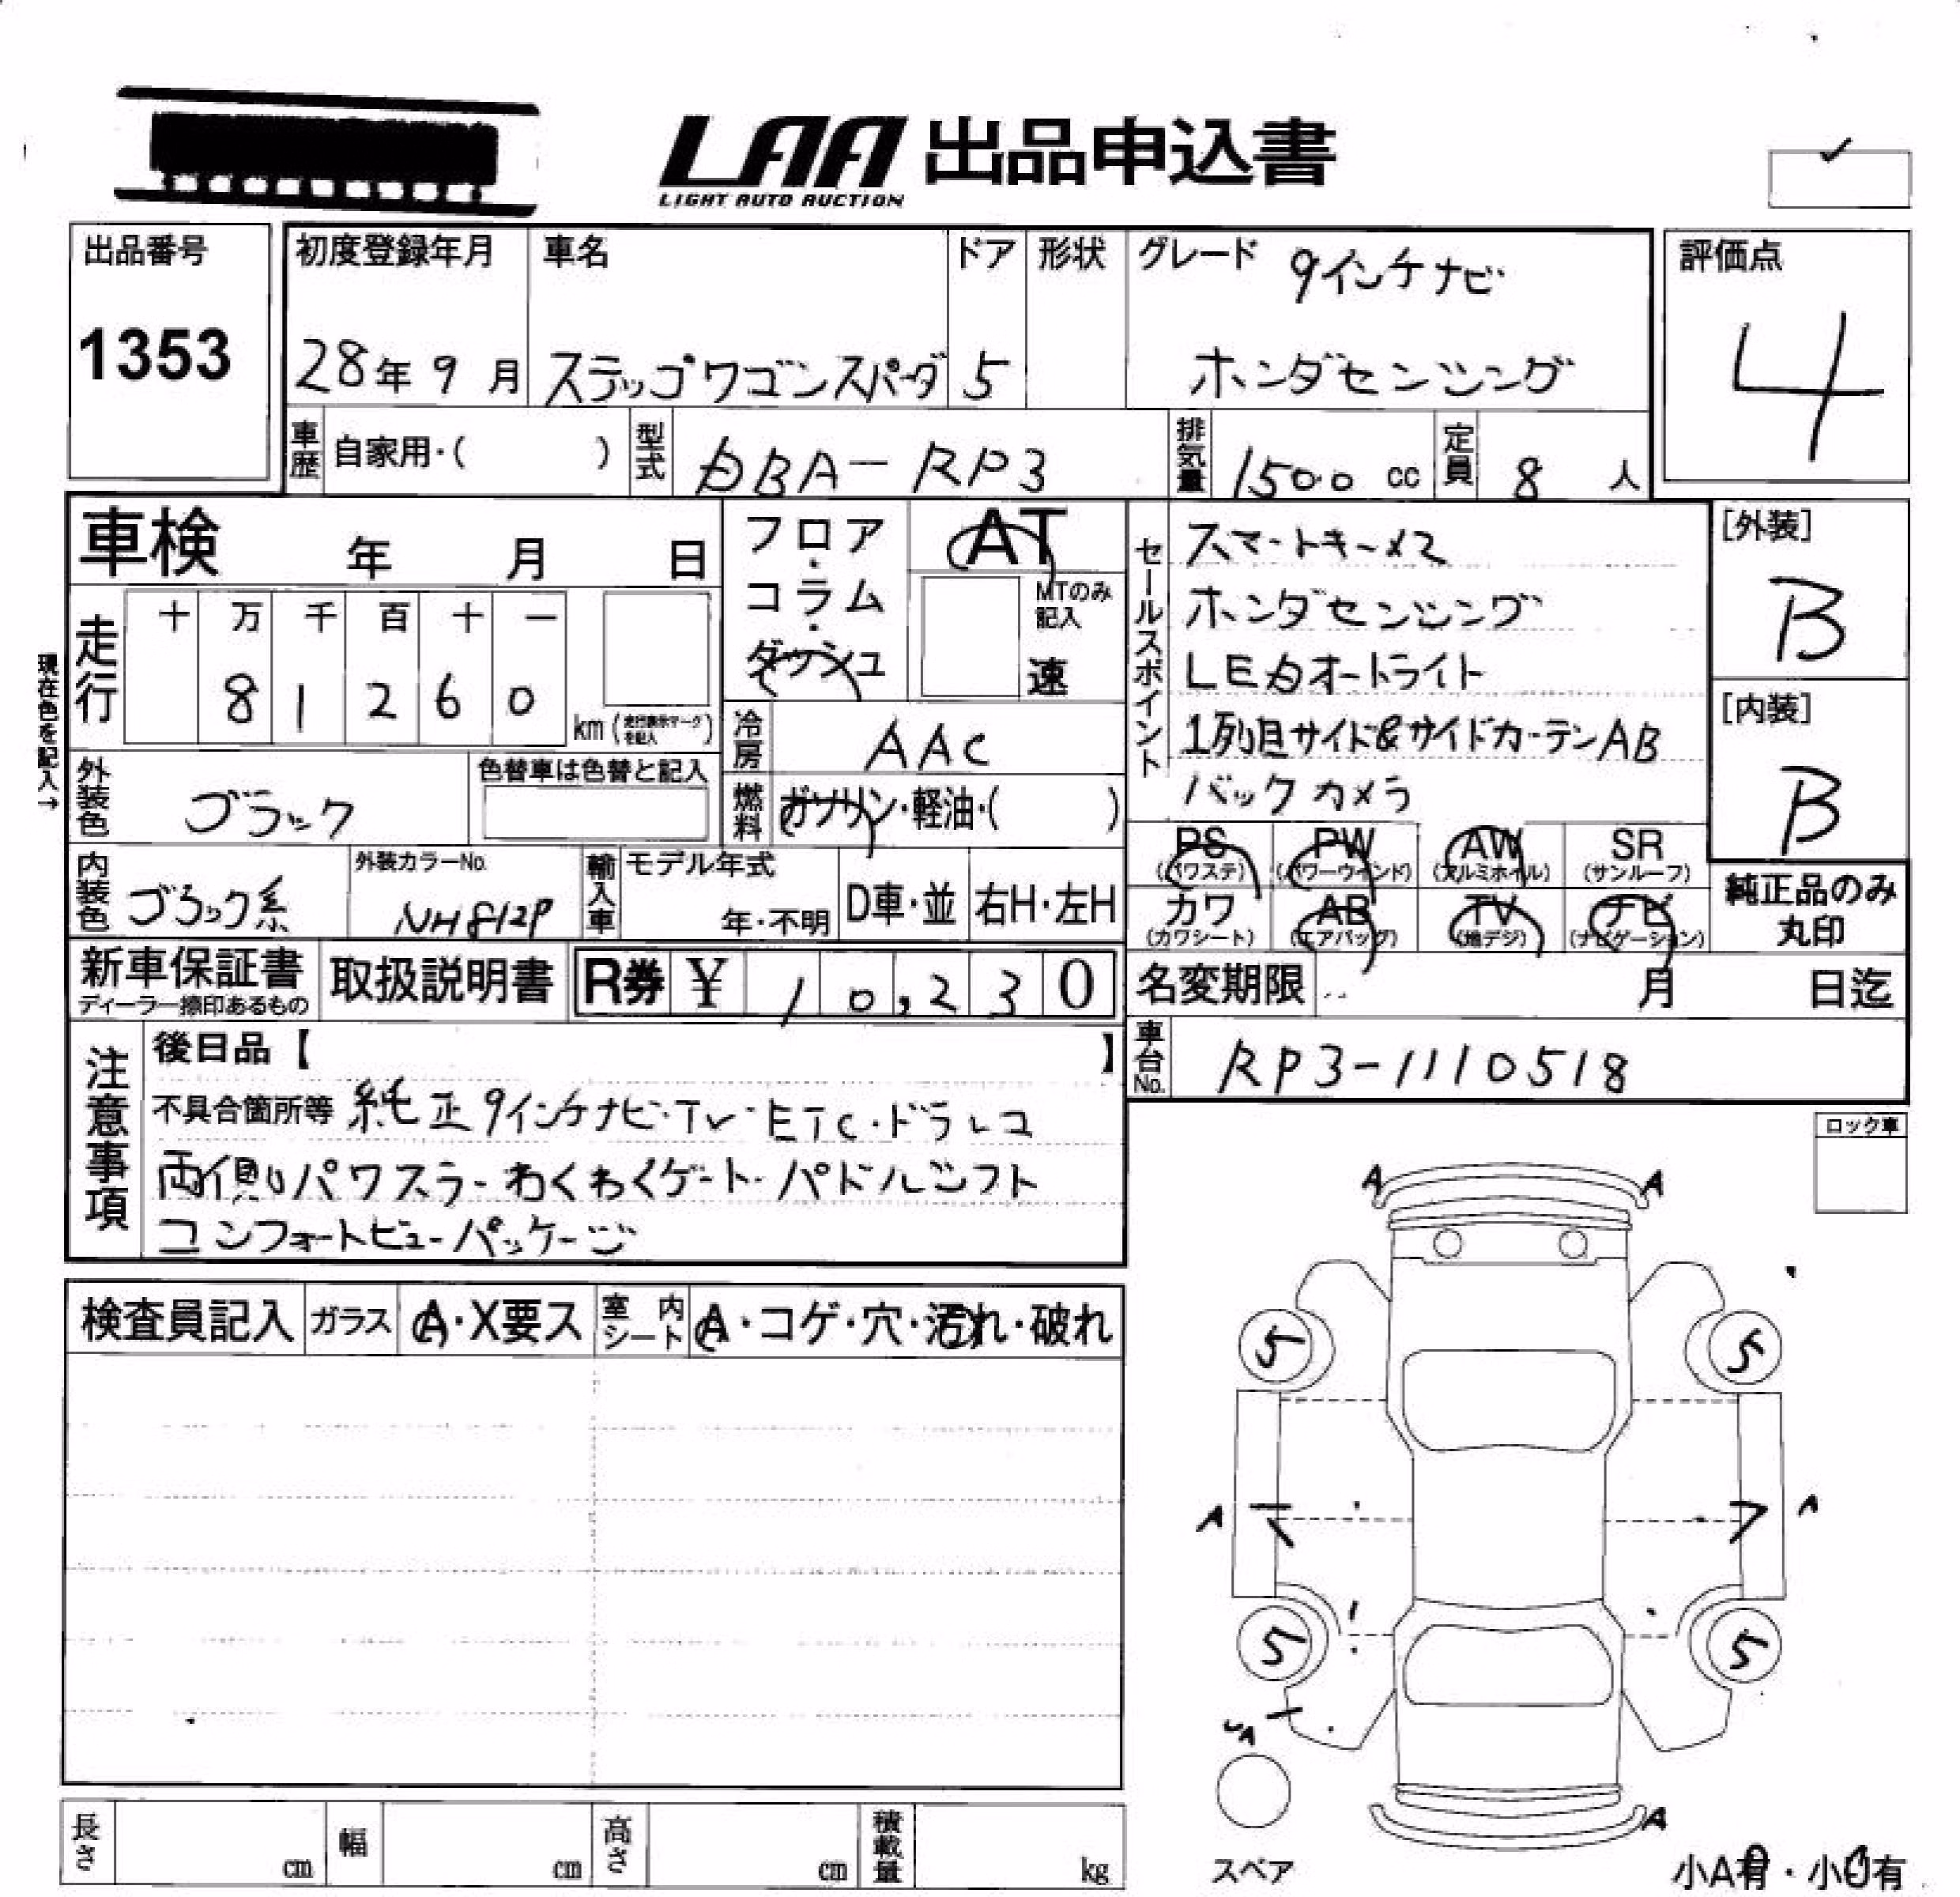 LAA 出品申込書
LIGHT AUTO AUCTION
出品番号
1353
初度登録年月
28年9月
車名
ステップワゴンスパーダ
ドア
5
形状
グレード 9インチナビ
ホンダセンシング
評価点
4
車歴 自家用・( )
型式 DBA-RP3
排気量 1500 cc
定員 8 人
車検 年 月 日
フロア・コラム・ダッシュ
AT
MTのみ記入
速
現在色を記入→
走行
十 万 千 百 十 一
8 1 2 6 0
km (走行表示マークを記入)
冷房 AAC
燃料 ガソリン・軽油・( )
外装色 ブラック
色替車は色替と記入
内装色 ブラック系
外装カラーNo.
NH812P
輸入車 モデル年式
年・不明
D車・並 右H・左H
セールスポイント
スマートキー×2
ホンダセンシング
LEDオートライト
1列目サイド&サイドカーテンAB
バックカメラ
[外装]
B
[内装]
B
PS (パワステ) PW (パワーウインド) AW (アルミホイル) SR (サンルーフ)
カワ (カワシート) AB (エアバッグ) TV (地デジ) ナビ (ナビゲーション)
純正品のみ
丸印
新車保証書
ディーラー捺印あるもの
取扱説明書
R券 ¥ 10,230
名変期限 月 日迄
車台No. RP3-1110518
注意事項
後日品【 】
不具合箇所等 純正9インチナビ・TV・ETC・ドラレコ
両側パワスラ・わくわくゲート・パドルシフト
コンフォートビューパッケージ
ロック車
検査員記入 ガラス A・X要ス 室内シート A・コゲ・穴・汚れ・破れ
A A
5 5
A A
5 5
A
スペア
小A有・小U有
長さ cm 幅 cm 高さ cm 積載量 kg